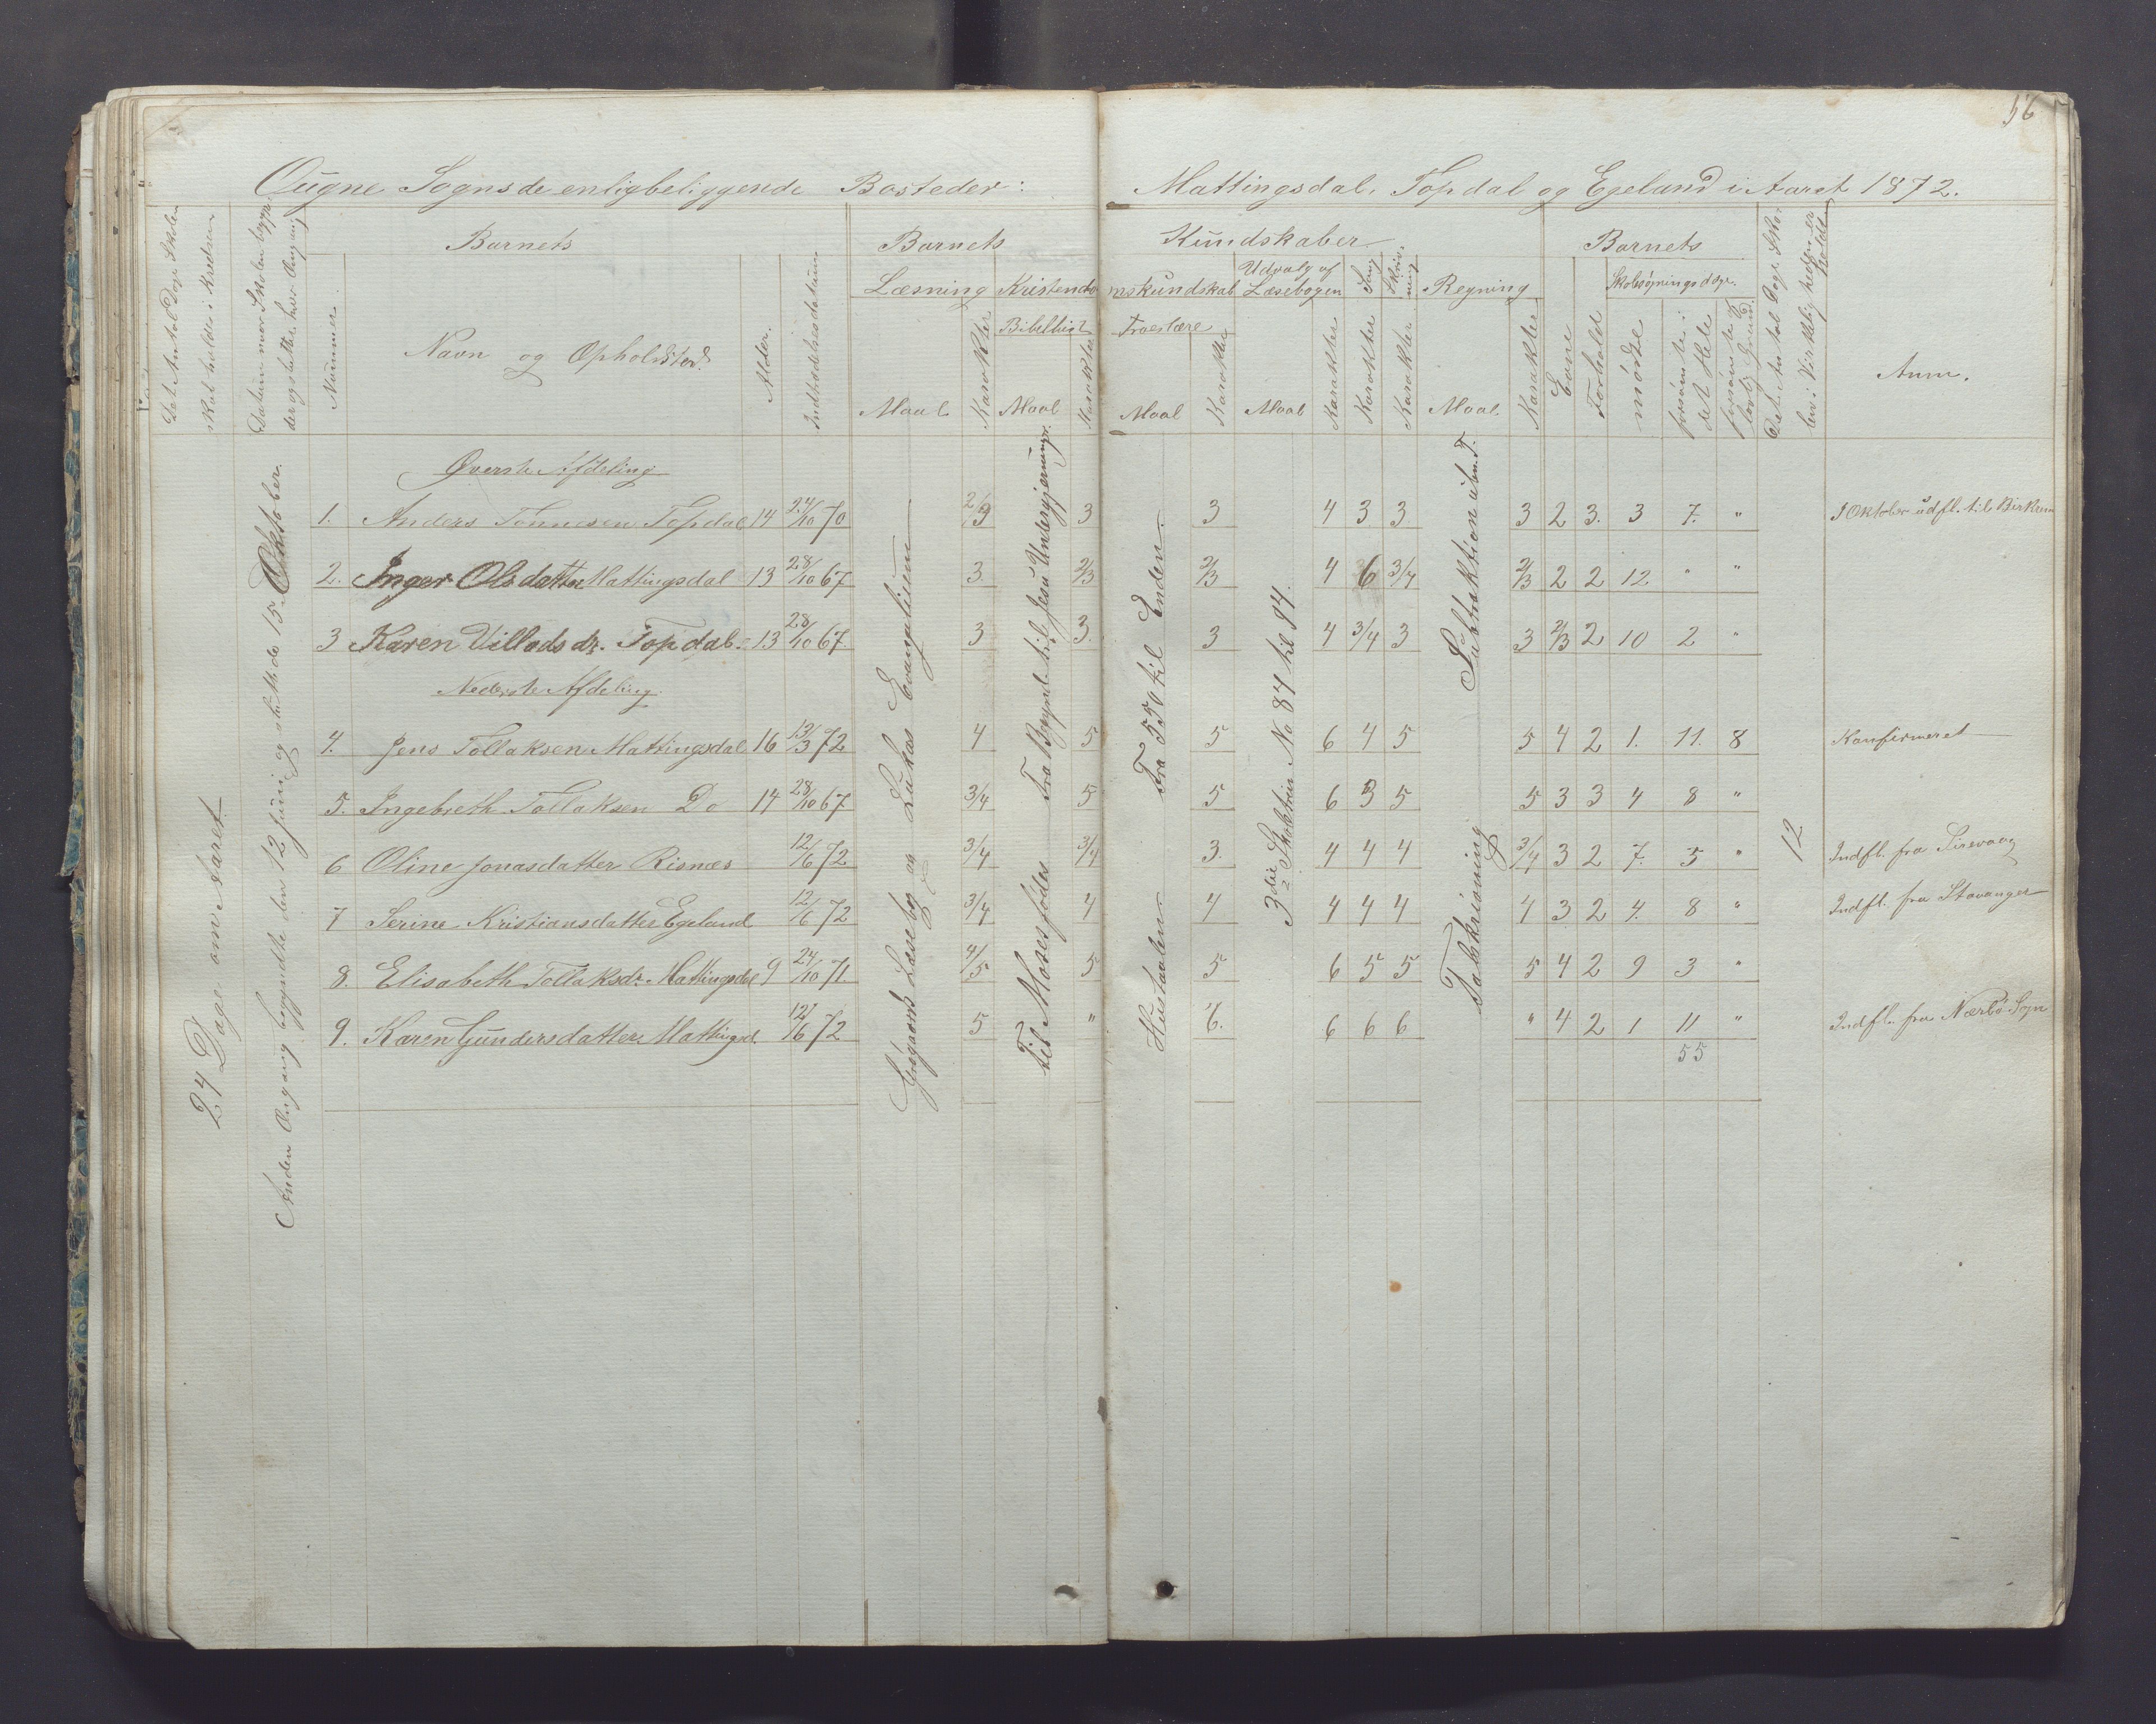 56
Ougne Sogns de enligbeliggende Bosteder: Mattingsdal, Topdal og Egeland i Aaret 1872.
Det Antal Dage Skolen skal holdes i Kredsen
Datum naar Skolen begyndte og sluttede hver Omgang
Barnets
Nummer
Navn og Opholdssted.
Alder.
Indtrædelsesdatum
Barnets Kundskaber
Læsning
Maal
Karakter
Kristendomskundskab
Bibelhist
Maal
Karakter
Troeslære
Maal
Karakter
Udvalg af Læsebogen
Maal
Karakter
Sang
Karakter
Skrivning
Karakter
Regning
Maal.
Karakter
Barnets
Evne
Forhold
Skolesøgningsdage.
mødte
forsømte i det Hele
forsømte af lovl. Grund.
Det Antal Dage Skolen i Virkeligheden er holdt
Anm.
24 Dage om Aaret
Anden Omgang begyndte den 12 Juni og sluttede 15. Oktober.
Øverste Afdeling
1. Anders Tønnesen Topdal 14 24/10 70 2/3 3 3 4 3 3 3 2 3. 3 7. " I Oktober udfl. til Birkrem
2. Inger Olsdatter Mattingsdal 13 28/10 67 3. 2/3 2/3 4 6 3/4 2/3 2 2 12 " "
3 Karen Villadsdr. Topdal 13 28/10 67. 3 3. 3 4 3/4 3 3 2/3 2 10 2 "
Nederste Afdeling.
4. Jens Tollaksen Mattingsdal 16 13/3 72 4 5 5 6 4 5 5 4 2 1. 11. 8 Konfirmeret
5. Ingebreth Tollaksen Do 14 28/10 67 3/4 5 5 6 3 5 5 3 3 4 8 "
6 Oline Jonasdatter Risnæs 12/6 72 3/4 3/4 3. 4 4 4 3/4 3 2 7. 5 " Indfl. fra Sirevaag
7 Serine Kristiansdatter Egeland 12/6 72 3/4 4 4 4 4 4 4 3 2 4. 8 " Indfl. fra Stavanger
8. Elisabeth Tollaksdr. Mattingsdal 9 24/10 71. 4/5 5 5 6 5 5 5 4 2 9 3 "
9. Karen Gundersdatter Mattingsd. 12/6 72 5 " 6. 6 6 6 " 4 2 1 11 " Indfl. fra Nærbø Sogn
55
12
Læsebog og Lukas Evangelium
Fra Begynd. til Jesu Undergjerninger.
Til Moses fødes
Fra 550 til Enden.
Hustavlen
3die Skoletrin No 84 til 94.
Subtraktion ubn. T.
Talskrivning